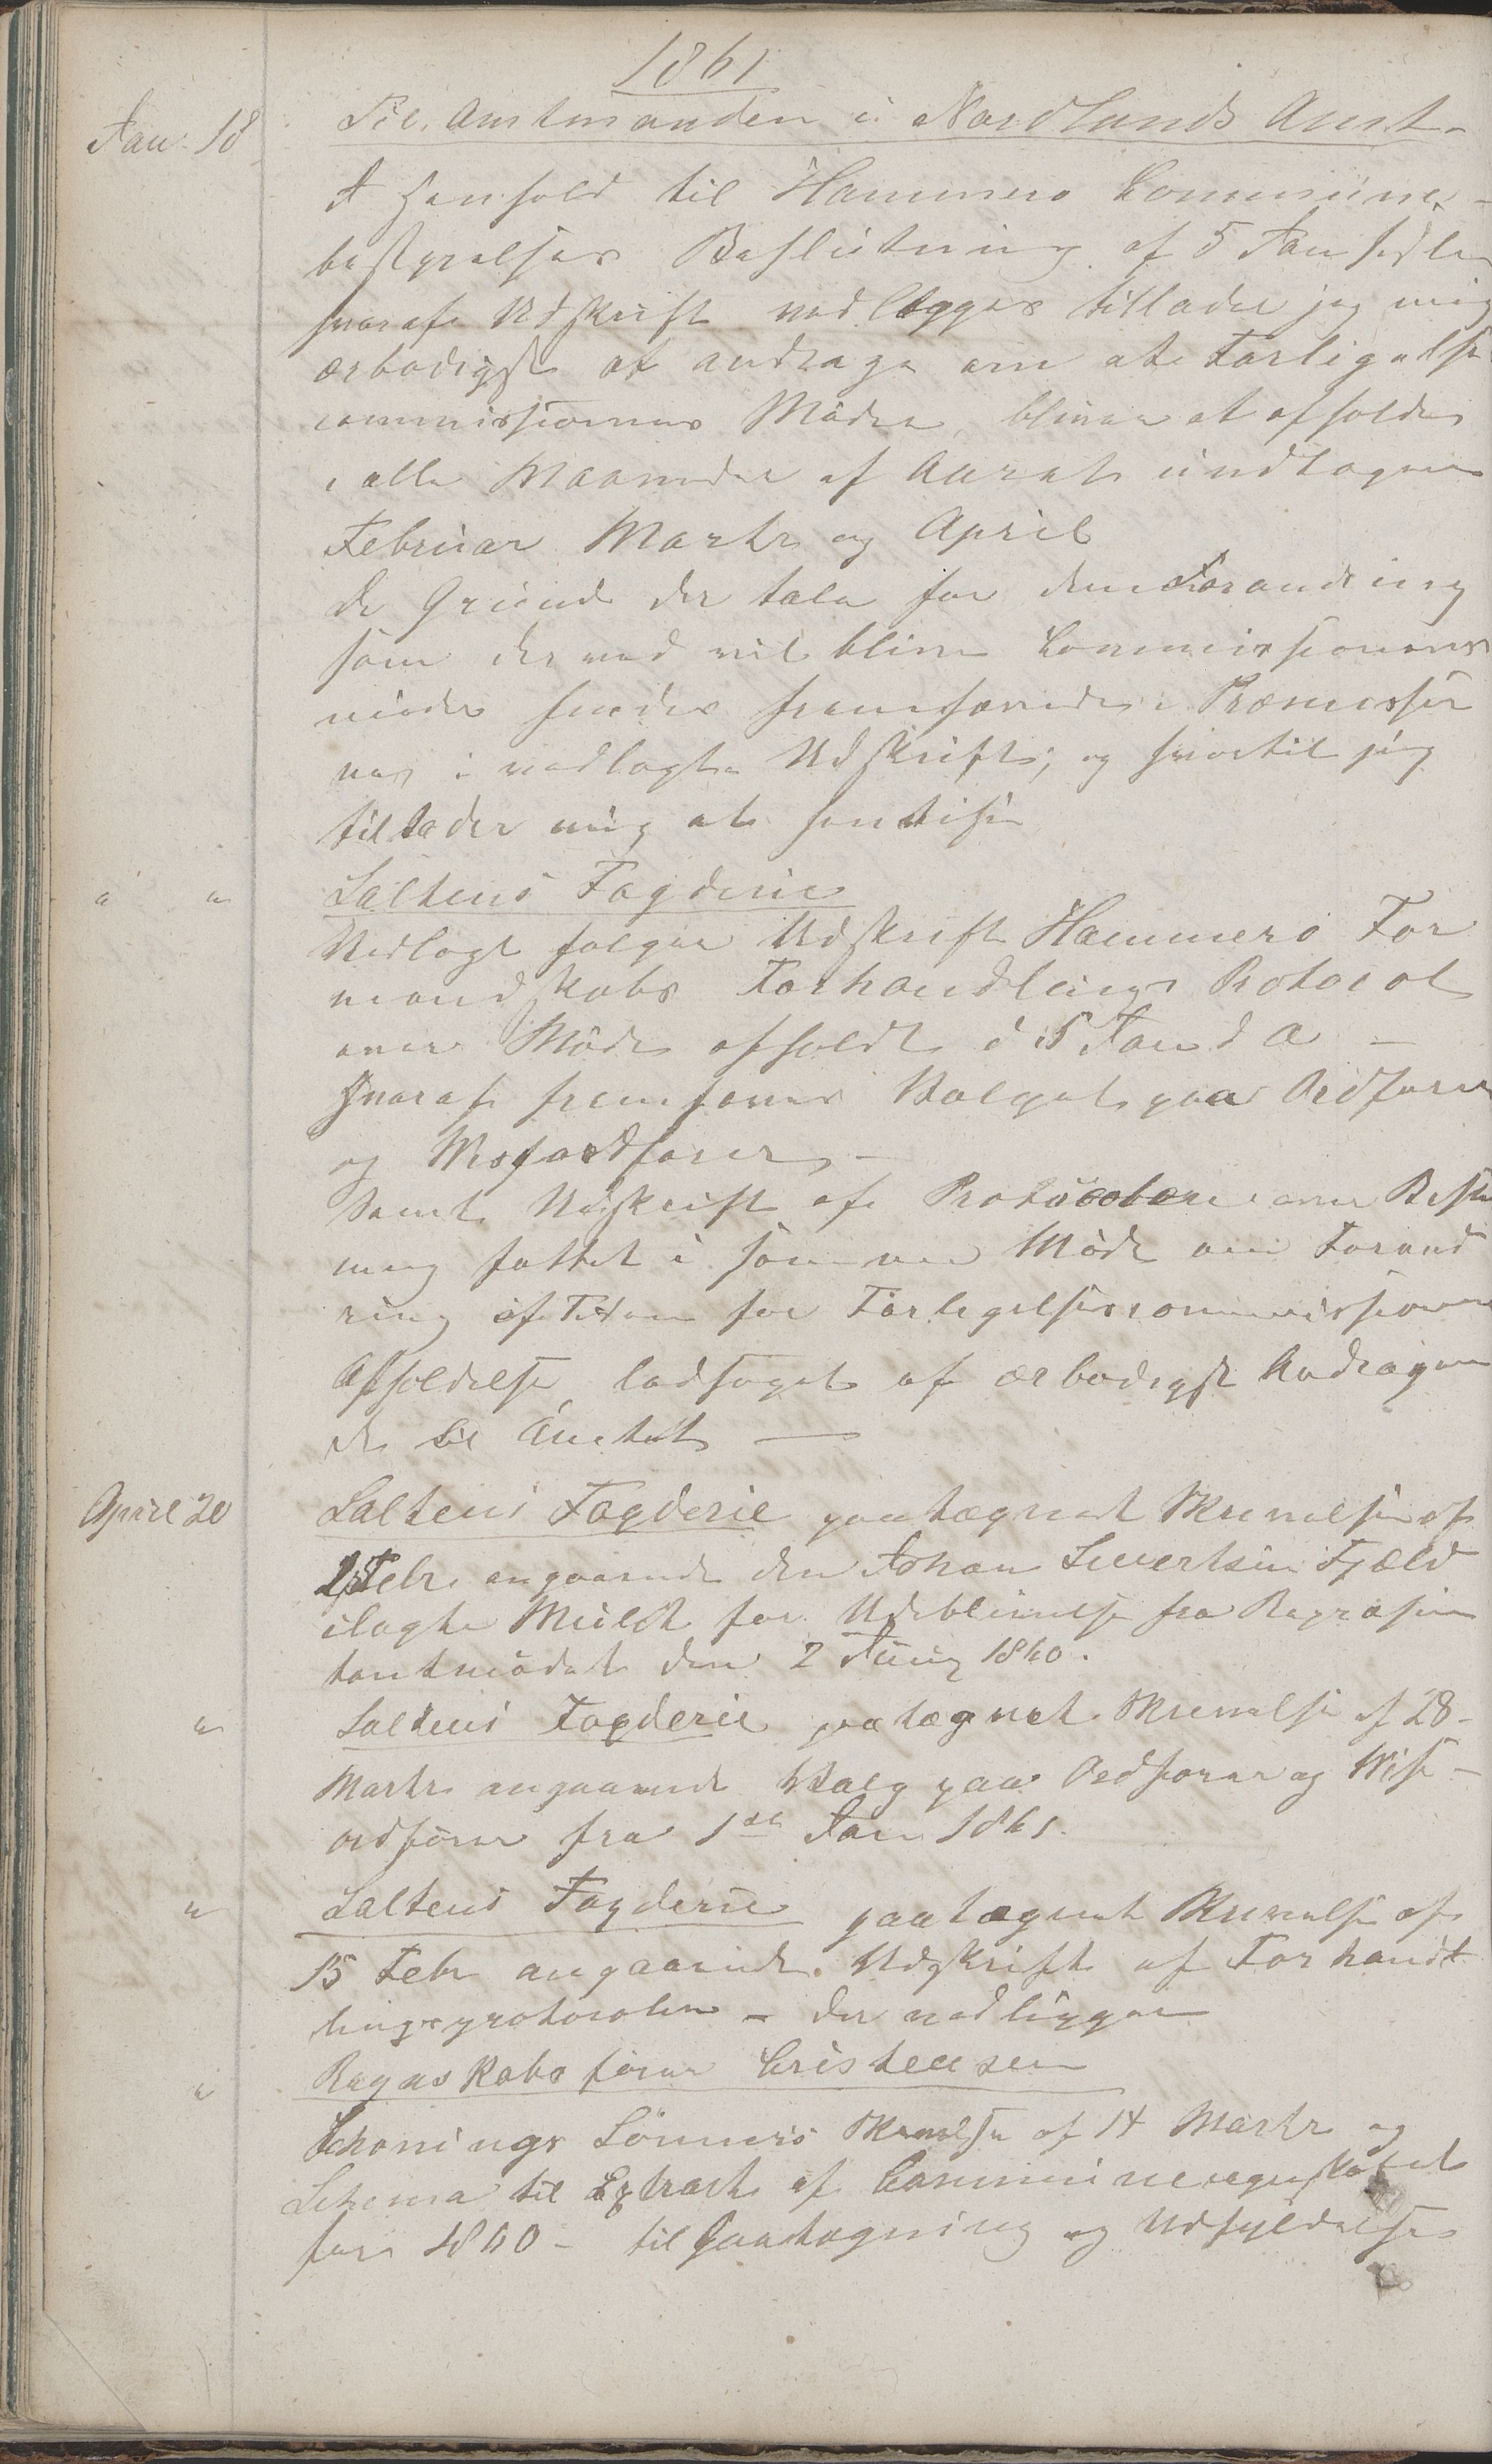 1861
Jan. 18
Til Amtmanden i Nordlands Amt.
I Henhold til Hammerø Commune-
bestyrelses Beslutning af 5 Jan sidstl
hvoraf Udskrift vedlægges tillader jeg mig
ærbødigst at andrage om at Forligelses
commissionens Møder, bliver at afholde
i alle Maaneder af Aaret undtagen
Februar Marts og April
De Grunde der tale for den Forandring
som der ved vil blive Commissionens
møder findes fremførende i Præmisser
nes i vedlagte Udskrift; og hvortil jeg
tillader mig at henvise
" "
Saltens Fogderie
Vedlagt følger Udskrift Hammerø For
mandskabs Forhandlings Protocol
over Møde afholdt d 5 Jan d A –
hvoraf fremkommer Valget paa Ordfører
og Viseordfører –
Samt Udskrift af Protocollen over Beslut
ning fattet i samme Møde om Forand
ring af Tiden for Forligelsescommissionens
Afholdelse ledsaget af ærbødigst Andragen
de til Amtet —
April 20
Saltens Fogderie paategnet Skrivelse af
Febr. angaaende den Johan Sivertsen Fjeld
ilagte Mulkt for Udeblivelse fra Repræsen
tantmødet den 2 Juny 1860.
"
Saltens Fogderie paategnet Skrivelse af 28 –
Marts angaaende Valg paa Ordfører og Vise –
ordfører fra 1ste Jan 1861.
"
Saltens Fogderie paategnet Skrivelse af
15 Febr angaaende Udskrift af Forhandt
lingsprotocolen – der vedligger
"
Regnskabsfører Cristensen
Schonings Sönners Skrivelse af 14 Marts og
Schema til Extract af Communeregnskabet
for 1860 – til Paategning og Udfyldelse